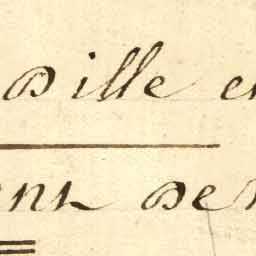 dille en
ent de